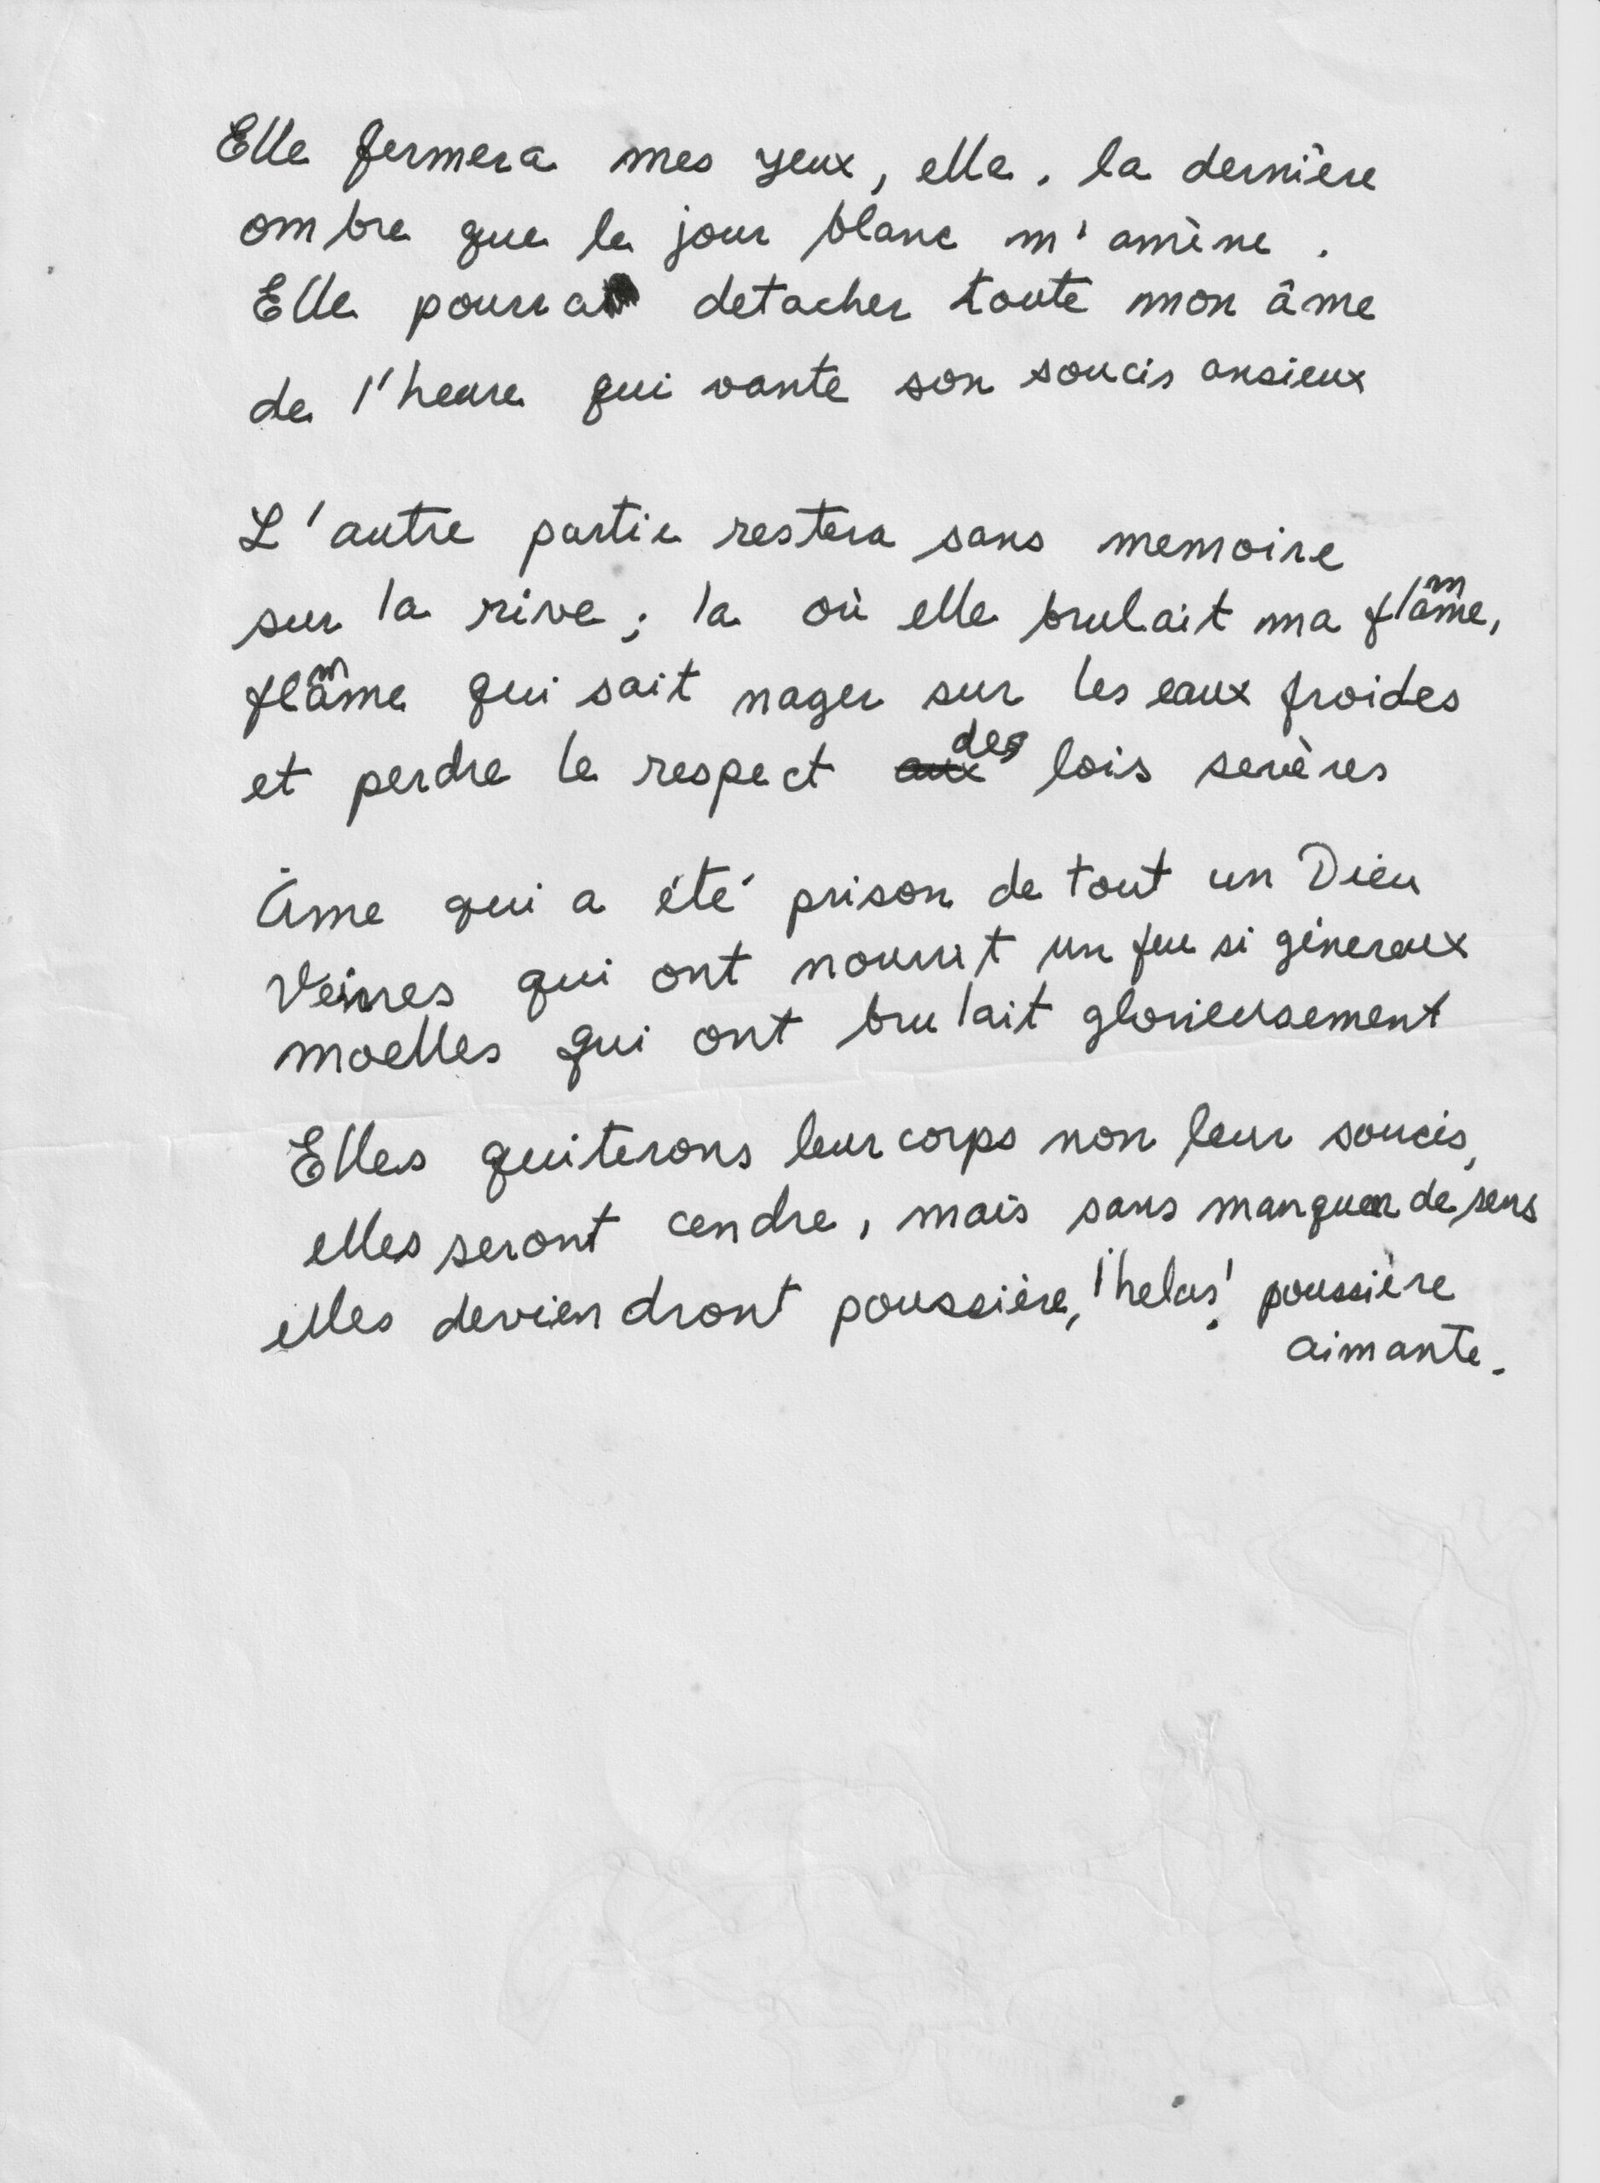 Elle fermera mes yeux, elle, la dernière
ombre que le jour blanc m'amène.
Elle pourra detacher toute mon âme
de l'heure qui vante son soucis ansieux
L'autre partie restera sans memoire
sur la rive; la où elle brulait ma flamme,
flamme qui sait nager sur les eaux froides
et perdre le respect des lois serères
Âme qui a été prison de tout un Dieu
Veines qui ont nourrit un feu si géneraux
moelles qui ont brulait glorieusement
Elles quiterons leur corps non leur soucis,
elles seront cendre, mais sans manquer de sens
elles deviendront poussière, helas! poussière
aimante.